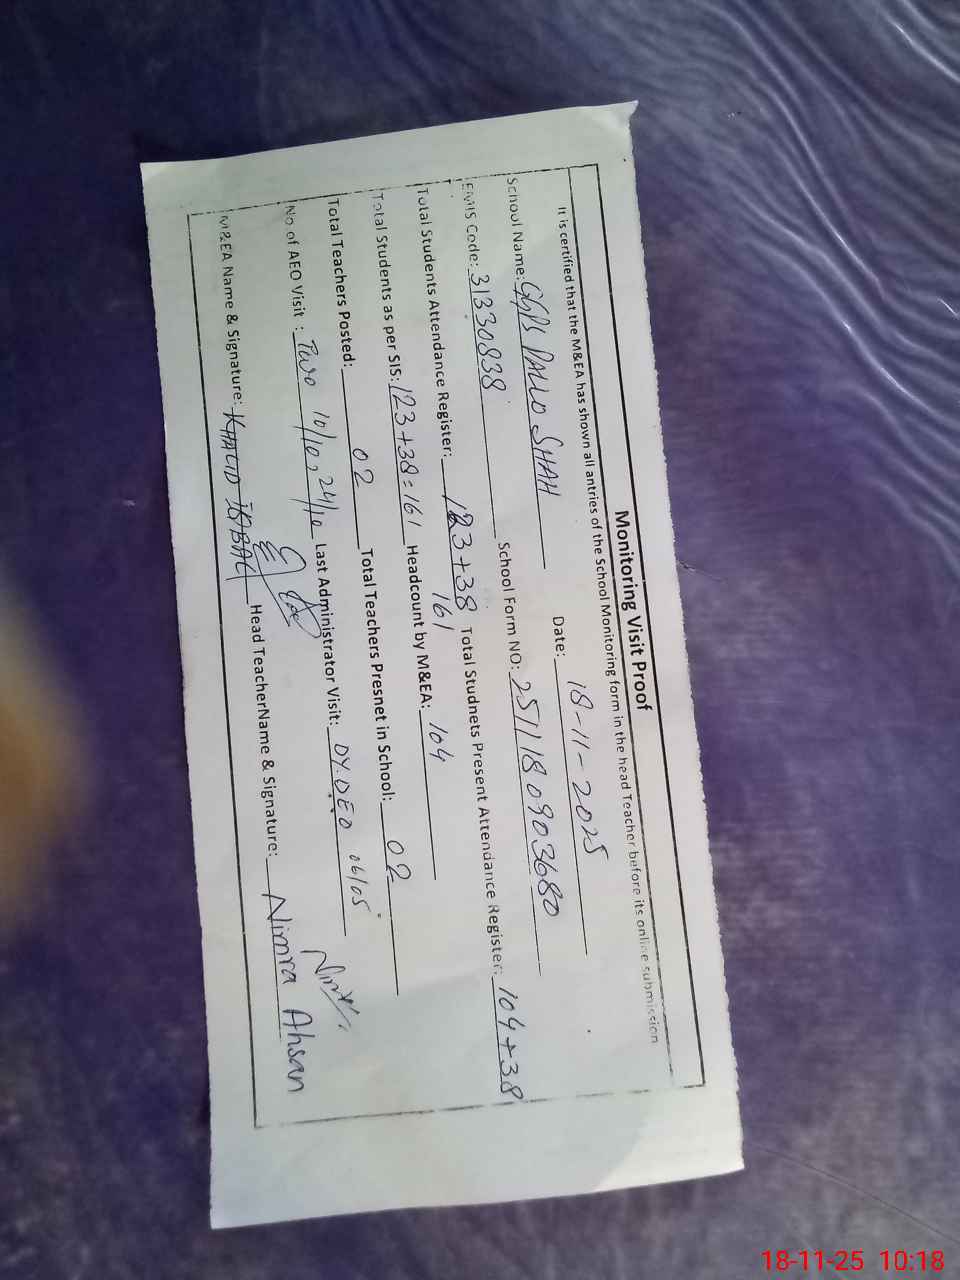 Monitoring Visit Proof
It is certified that the M&EA has shown all antries of the School Monitoring form in the head Teacher before its online submission
School Name: GGPS DALLO SHAH Date: 18-11-2025
EMIS Code: 31330838 School Form NO: 2511180903680
Total Students Attendance Register: 123+38 Total Studnets Present Attendance Register: 104+38
161
Total Students as per SIS: 123+38=161 Headcount by M&EA: 104
Total Teachers Posted: 02 Total Teachers Presnet in School: 02
No of AEO Visit : Two 10/10, 24/10 Last Administrator Visit: DY.DEO 06/05
M&EA Name & Signature: KHALID IQBAL Head TeacherName & Signature: Nimra Ahsan
18-11-25 10:18